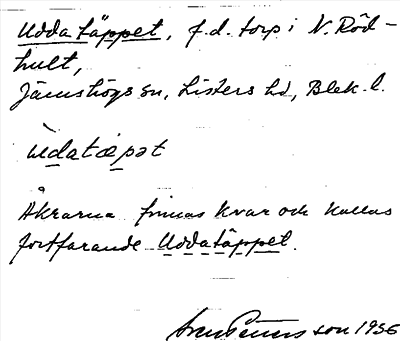 Uddatäppet, f.d. torp i N. Röd-
hult,
Jämshögs sn, Listers hd, Blek. l.
udatæpət
Åkrarna finnas kvar och kallas
fortfarande Uddatäppet.
Sven Peterson 1936